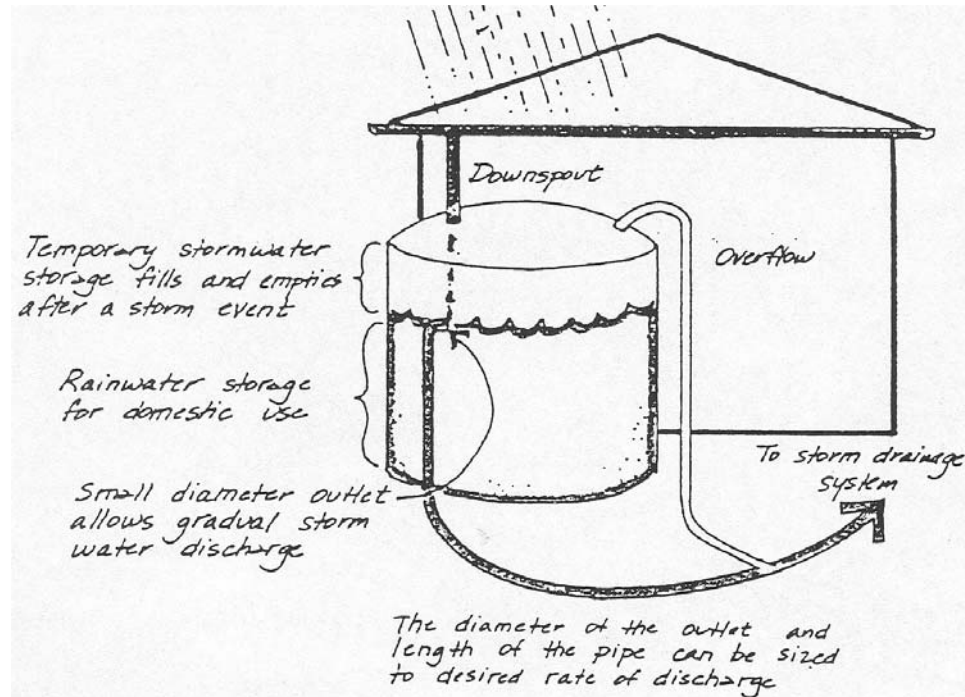 Downspout
Temporary stormwater
storage fills and empties
after a storm event
Overflow
Rainwater storage
for domestic use
To storm drainage
system
Small diameter outlet
allows gradual storm
water discharge
The diameter of the outlet and
length of the pipe can be sized
to desired rate of discharge